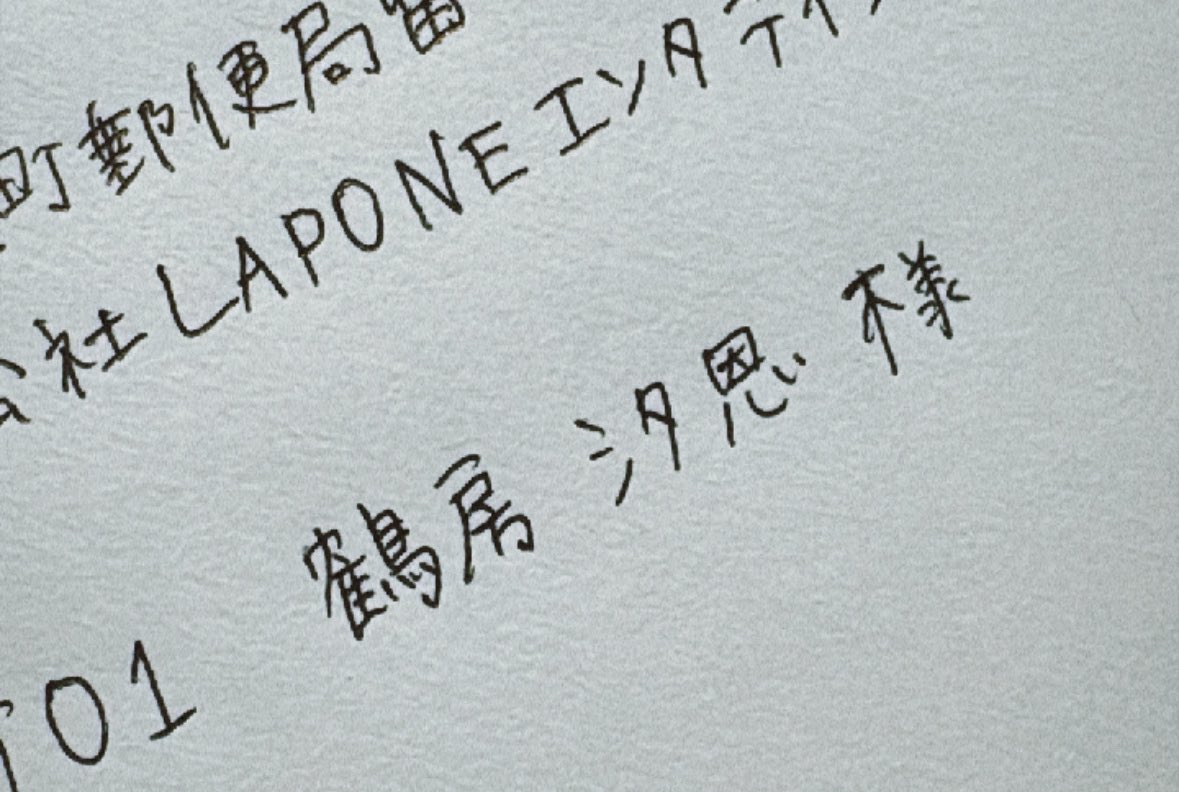 町郵便局留
会社LAPONEエンタテイ
鶴房 汐恩 様
01